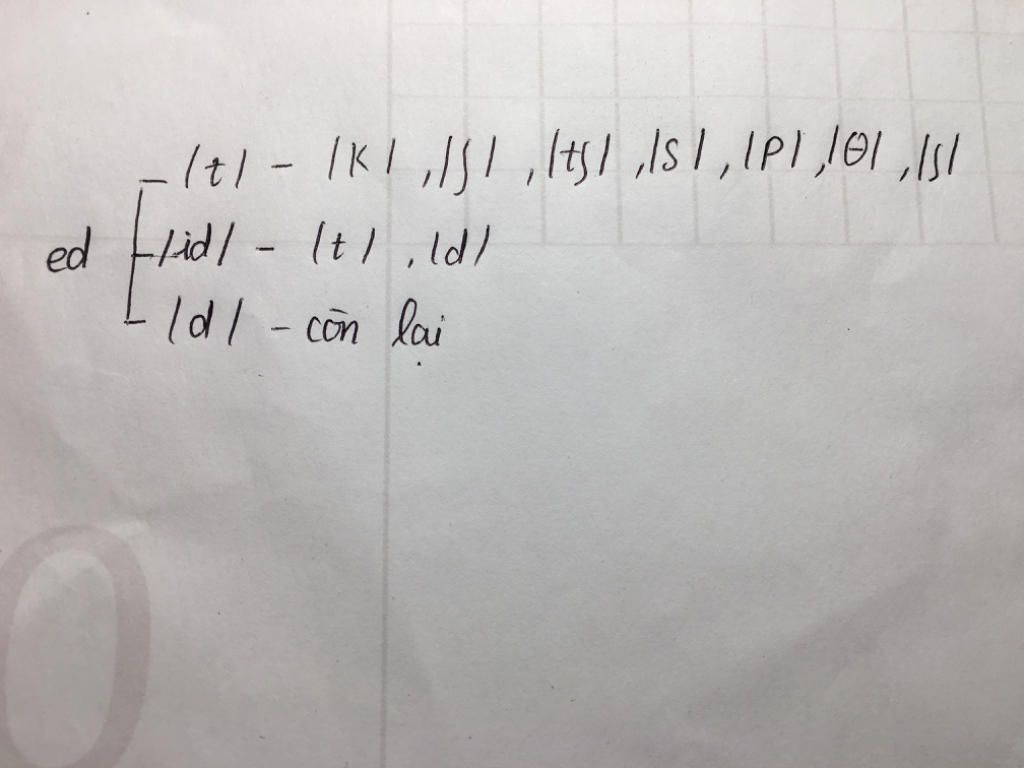 - /t/ - /k/, /ʃ/, /tʃ/, /s/, /p/, /θ/, /ʃ/
ed - /id/ - /t/, /d/
- /d/ - còn lại